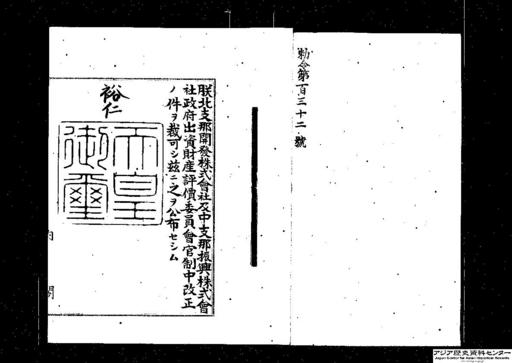 勅令第百三十二號
朕北支那開發株式會社及中支那振興株式會
社政府出資財産評價委員會官制中改正
ノ件ヲ裁可シ玆ニ之ヲ公布セシム
裕仁
天皇
御璽
内閣
アジア歴史資料センター
Japan Center for Asian Historical Records